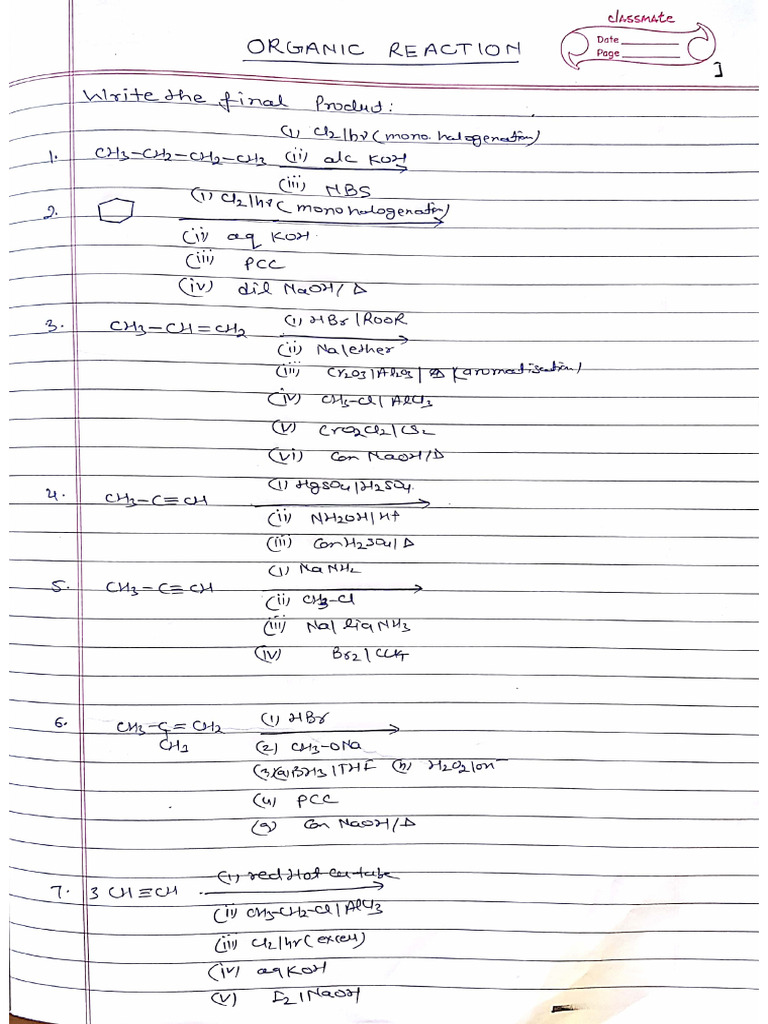 classmate
Date
Page
ORGANIC REACTION
Write the final Product:
1. CH3-CH2-CH2-CH3 (i) Cl2/hν (mono. halogenation)
(ii) alc KOH
(iii) NBS
2. (i) Cl2/hν (mono halogenation)
(ii) aq KOH
(iii) PCC
(iv) dil NaOH/Δ
3. CH3-CH=CH2 (i) HBr/ROOR
(ii) Na/ether
(iii) Cr2O3/Al2O3/Δ (aromatisation)
(iv) CH3-Cl/AlCl3
(v) CrO2Cl2/CS2
(vi) Con NaOH/Δ
4. CH3-C≡CH (i) HgSO4/H2SO4
(ii) NH2OH/H+
(iii) Con H2SO4/Δ
5. CH3-C≡CH (i) NaNH2
(ii) CH3-Cl
(iii) Na/liq NH3
(iv) Br2/CCl4
6. CH3-C=CH2 (1) HBr
CH3 (2) CH3-ONa
(3)(a) BH3/THF (b) H2O2/OH-
(4) PCC
(g) Con NaOH/Δ
7. 3 CH≡CH (i) red Hot Cu-tube
(ii) CH3-CH2-Cl/AlCl3
(iii) Cl2/hν (excess)
(iv) aq KOH
(v) I2/NaOH